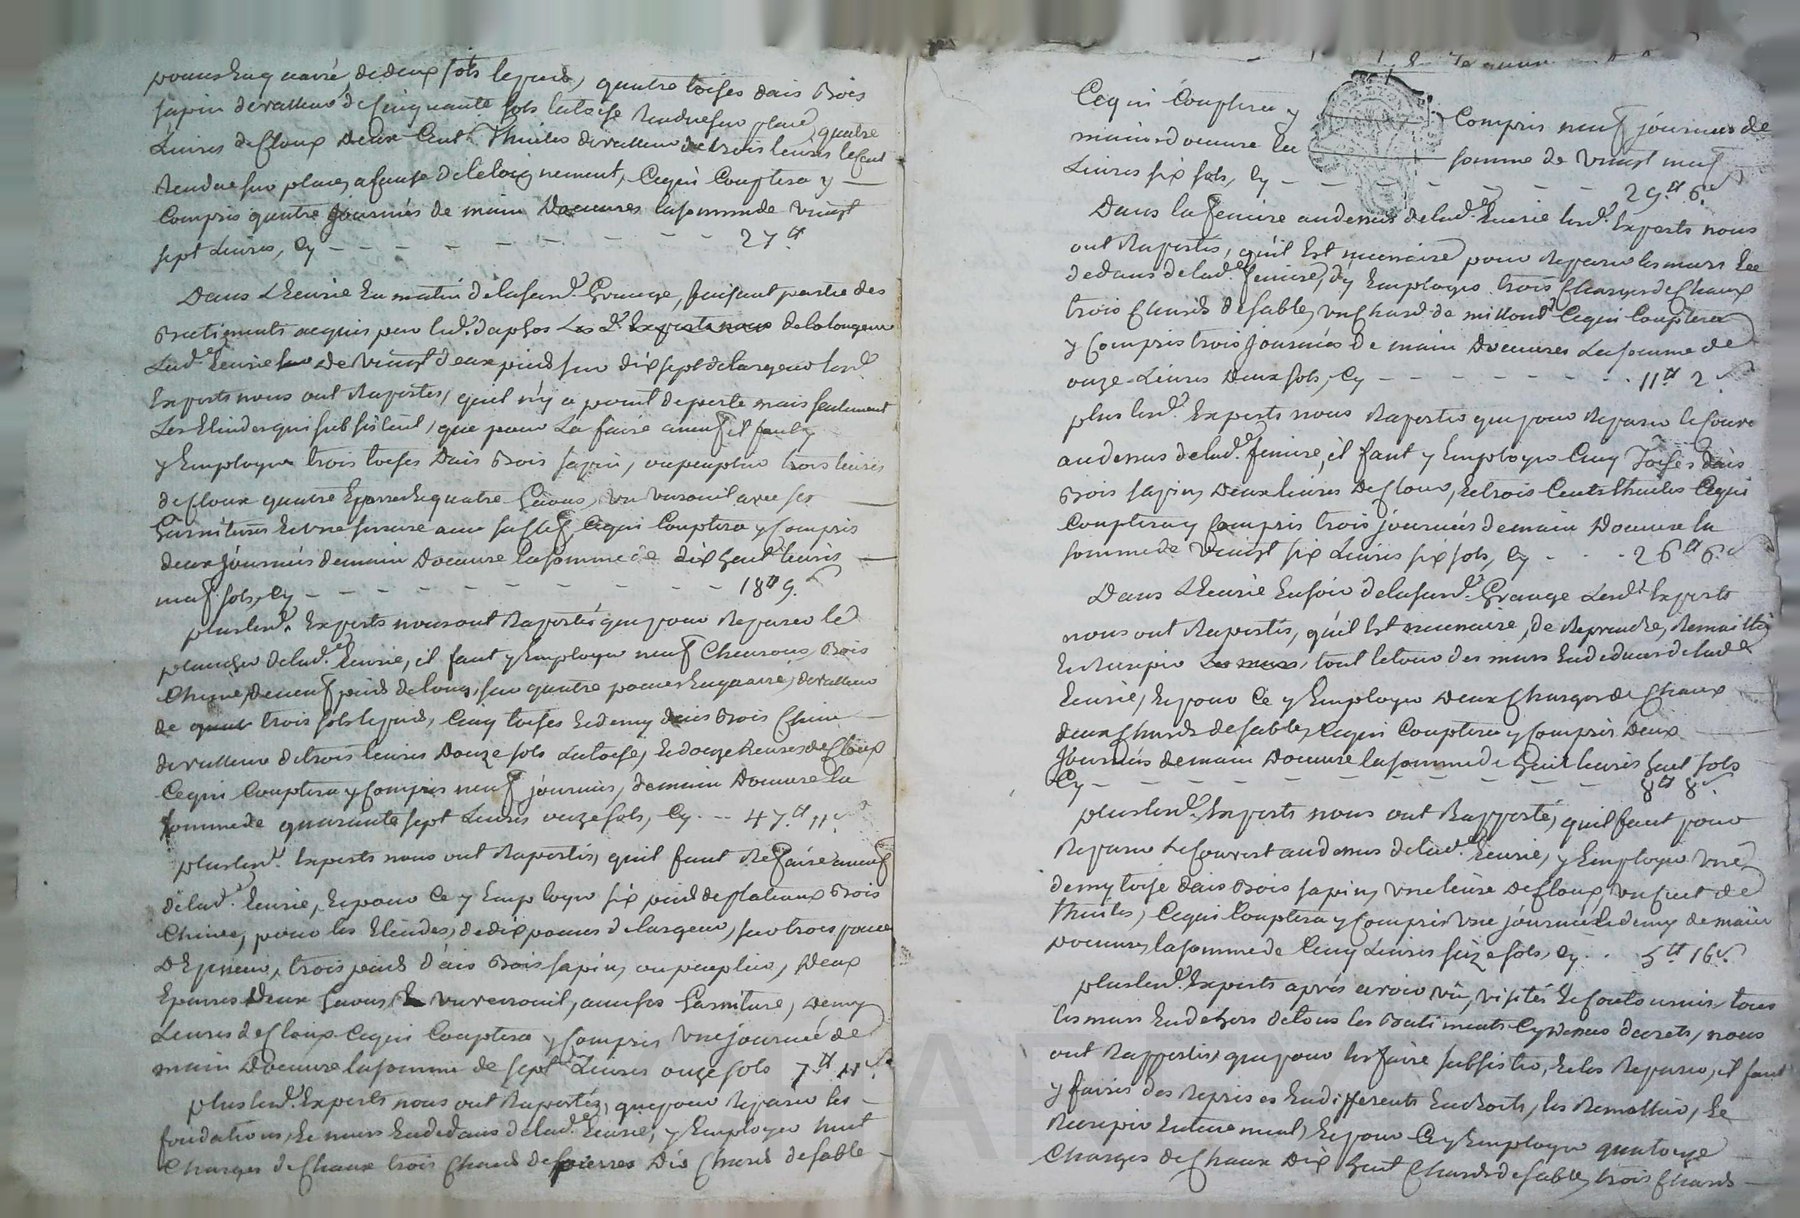 pouces en quarré, de deux sols le pied, quatre toises dais Bois
sapin de valleur de cinquante sols la toise rendue sur place, quatre
Livres de cloux Deux Cent Thuiles de valleur de trois livres le cent
rendue sur place, a cause de l'eloignement, Ce qui Couptera y
Compris quatre journées de main Doeuvres la somme de vingt
sept Livres, Cy - - - - - - - 27 ₶
Dans L'Ecurie En matin de la susd.e Grange, faisant partie des
Batiments acquis par lud.t Les d.ts Experts nous de la longeur
Lad.e Ecurie de vingt deux pieds sur dix sept de largeur lesd.ts
Experts nous ont Raportés, qu'il n'y a point de porte mais seulement
Les Elindes qui subsistent, que pour La faire a neuf il faut
y Employer trois toises Dais Bois sapin, ou peuplier trois livres
de cloux quatre Eparres Et quatre Gavons, un verouil avec ses
Garnitures Et une serrure avec sa clef, Ce qui Couptera y Compris
deux journées de main Doeuvre la somme de dix huit livres
neuf sols, Cy - - - - - - - 18 ₶ 9 s.
plus lesd.ts Experts nous ont Raportés que pour Reparer le
plancher de lad.e Ecurie, il faut y Employer neuf Chevrons Bois
Chene, de neuf pieds de long, sur quatre pouces En quarré, de valleur
de trois sols le pied, Cinq toises Et demy dais Bois Chene
de valleur de trois livres Douze sols La toise, Et douze livres de Cloux
Ce qui Couptera y Compris neuf journées, de main Doeuvre la
somme de quarante sept Livres onze sols, Cy - - 47 ₶ 11 s.
plus lesd.ts Experts nous ont Raportés, qu'il faut Refaire a neuf
de lad.e Ecurie, Et pour Ce y Employer six pieds de plateaux Bois
Chene, pour les Elindes, de dix pouces de largeur, sur trois pouces
D'Epaisseur, trois pieds d'ais Bois sapin, ou peuplier, Deux
Eparres Deux Gavons, Et un verrouil, avec ses Garniture, Demy
Livres de Cloux Ce qui Couptera y Compris une journée de
main Doeuvre la somme de sept Livres onze sols 7 ₶ 11 s.
plus lesd.ts Experts nous ont Raportés, que pour Reparer les
fondations, Et murs En dedans de lad.e Ecurie, y Employer huit
Charges de Chaux trois Chards de pierres Dix Chards de sable
Ce qui Couptera y Compris neuf journées de
main doeuvre la somme de vingt neuf
Livres six sols, Cy - - - - - - 29 ₶ 6 s.
Dans la feniere au dessus de lad.e Ecurie lesd.ts Experts nous
ont Raportés, qu'il Est necessaire pour Reparer les murs En
dedans de lad.e feniere, d'y Employer trois Charges de Chaux
trois Chards de sable, un Chard de Ce qui Couptera
y Compris trois journées de main Doeuvres La somme de
onze Livres Deux sols, Cy - - - - - - 11 ₶ 2 s.
plus lesd.ts Experts nous Raportés que pour Reparer le Couvert
au dessus de lad.e feniere, il faut y Employer Cinq Toises Dais
Bois sapin, Deux livres De Cloux, Et trois Cents thuiles Ce qui
Couptera y Compris trois journées de main Doeuvre la
somme de vingt six Livres six sols, Cy - - - 26 ₶ 6 s.
Dans L'Ecurie En soir de la susd.e Grange Lesd.ts Experts
nous ont Raportés, qu'il Est necessaire, de Reprendre, Remailler
Et Recrepir Les murs, tout le tour des murs En dedans de lad.e
Ecurie, Et pour Ce y Employer Deux Charges de Chaux
deux Chards de sable, Ce qui Couptera y Compris Deux
Journées de main Doeuvre la somme de huit livres huit sols
Cy - - - - - - - - 8 ₶ 8 s.
plus lesd.ts Experts nous ont Rapporté, qu'il faut pour
Reparer Le Couvert au dessus de lad.e Ecurie, y Employer une
demy toise dais Bois sapin, une livre De Cloux, un Cent de
thuiles, Ce qui Couptera y Compris une journée Et demy de main
Doeuvre, la somme de Cinq Livres seize sols, Cy - - 5 ₶ 16 s.
plus lesd.ts Experts après avoir vû, visités Et tous
les murs En dehors de tous les Batiments Cy dessus nous
ont Rapportés, que pour les faire subsister, Et les Reparer, il faut
y faires des Reprises En differents Endroits, les Remailler, Et
Recrepir Entierement, Et pour Ce y Employer quatorze
Charges de Chaux Dix huit Chards de sable, trois Chards